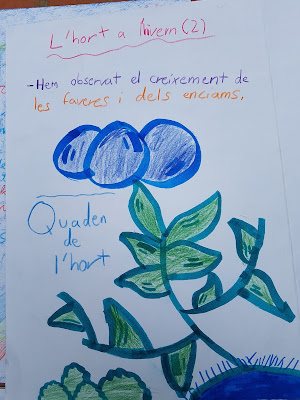 L'hort a l'hivern (2)
- Hem observat el creixement de
les faveres i dels enciams.
Quadern
de
l'hort